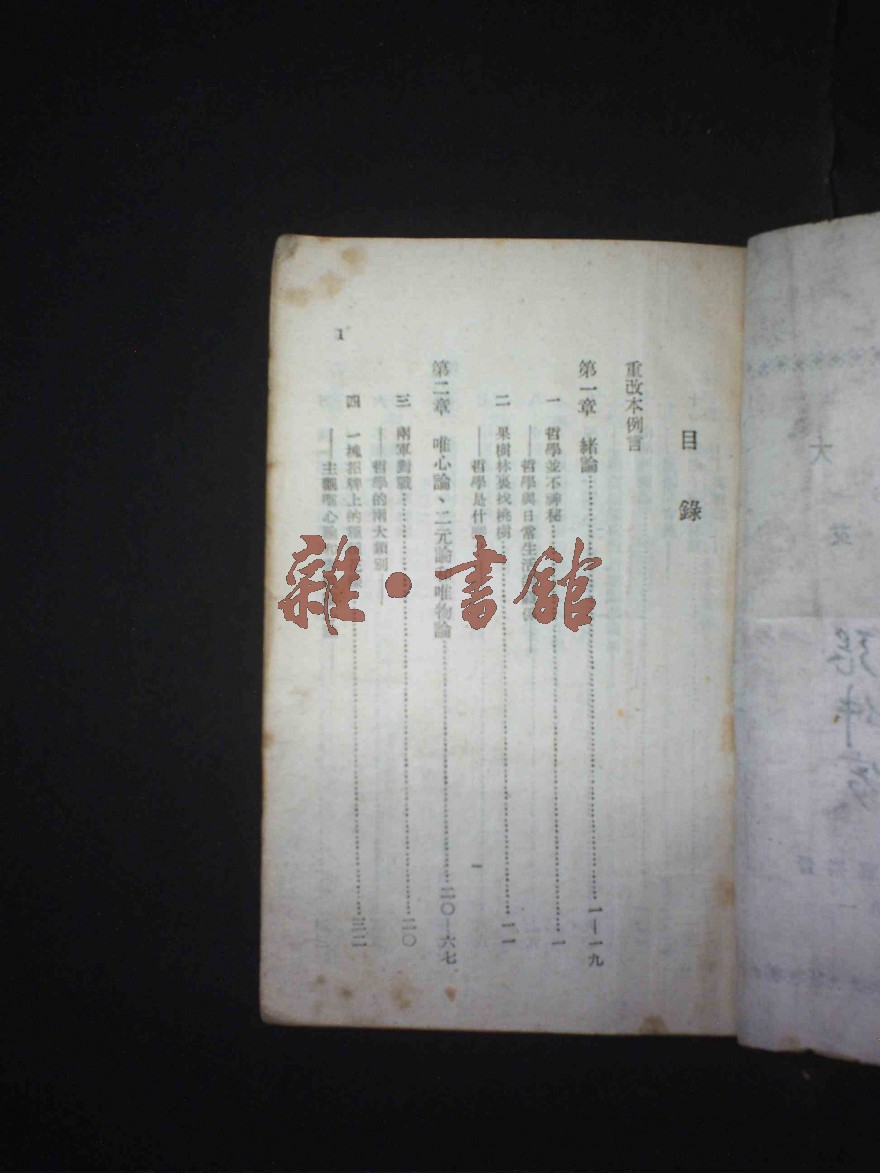 目錄
重改本例言
第一章 緒論…………一—一九
一 哲學並不神秘…………一
——哲學與日常生活
二 果樹林裏找桃樹…………一一
——哲學是什
第二章 唯心論、二元論 唯物論…………二〇—六七
三 兩軍對戰…………二〇
——哲學的兩大類別——
四 一塊招牌上的…………三二
——主觀唯心論
1
雜·書館
大